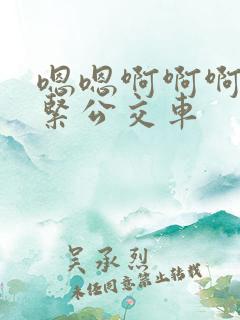 嗯嗯啊啊啊
紧公交车
吴承烈
未经同意禁止转载